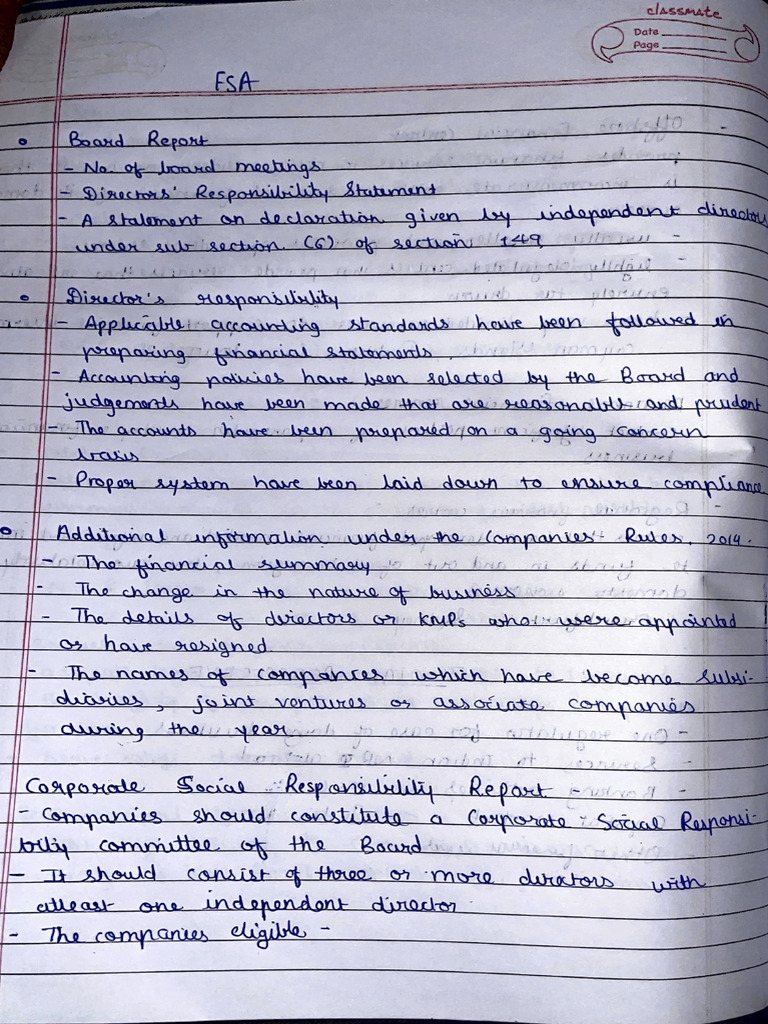 classmate
Date
Page
FSA
Board Report
- No. of board meetings
- Directors' Responsibility Statement
- A statement on declaration given by independent directors
under sub section (6) of section 149
Director's responsibility
- Applicable accounting standards have been followed in
preparing financial statements
- Accounting policies have been selected by the Board and
judgements have been made that are reasonable and prudent
- The accounts have been prepared on a going concern
basis
- Proper system have been laid down to ensure compliance
Additional information under the Companies Rules, 2014.
- The financial summary
- The change in the nature of business
- The details of directors or KMPs who were appointed
or have resigned
- The names of companies which have become subsi-
diaries, joint ventures or associate companies
during the year
Corporate Social Responsibility Report -
- Companies should constitute a Corporate Social Responsi-
bility committee of the Board
- It should consist of three or more directors with
atleast one independent director
- The companies eligible -